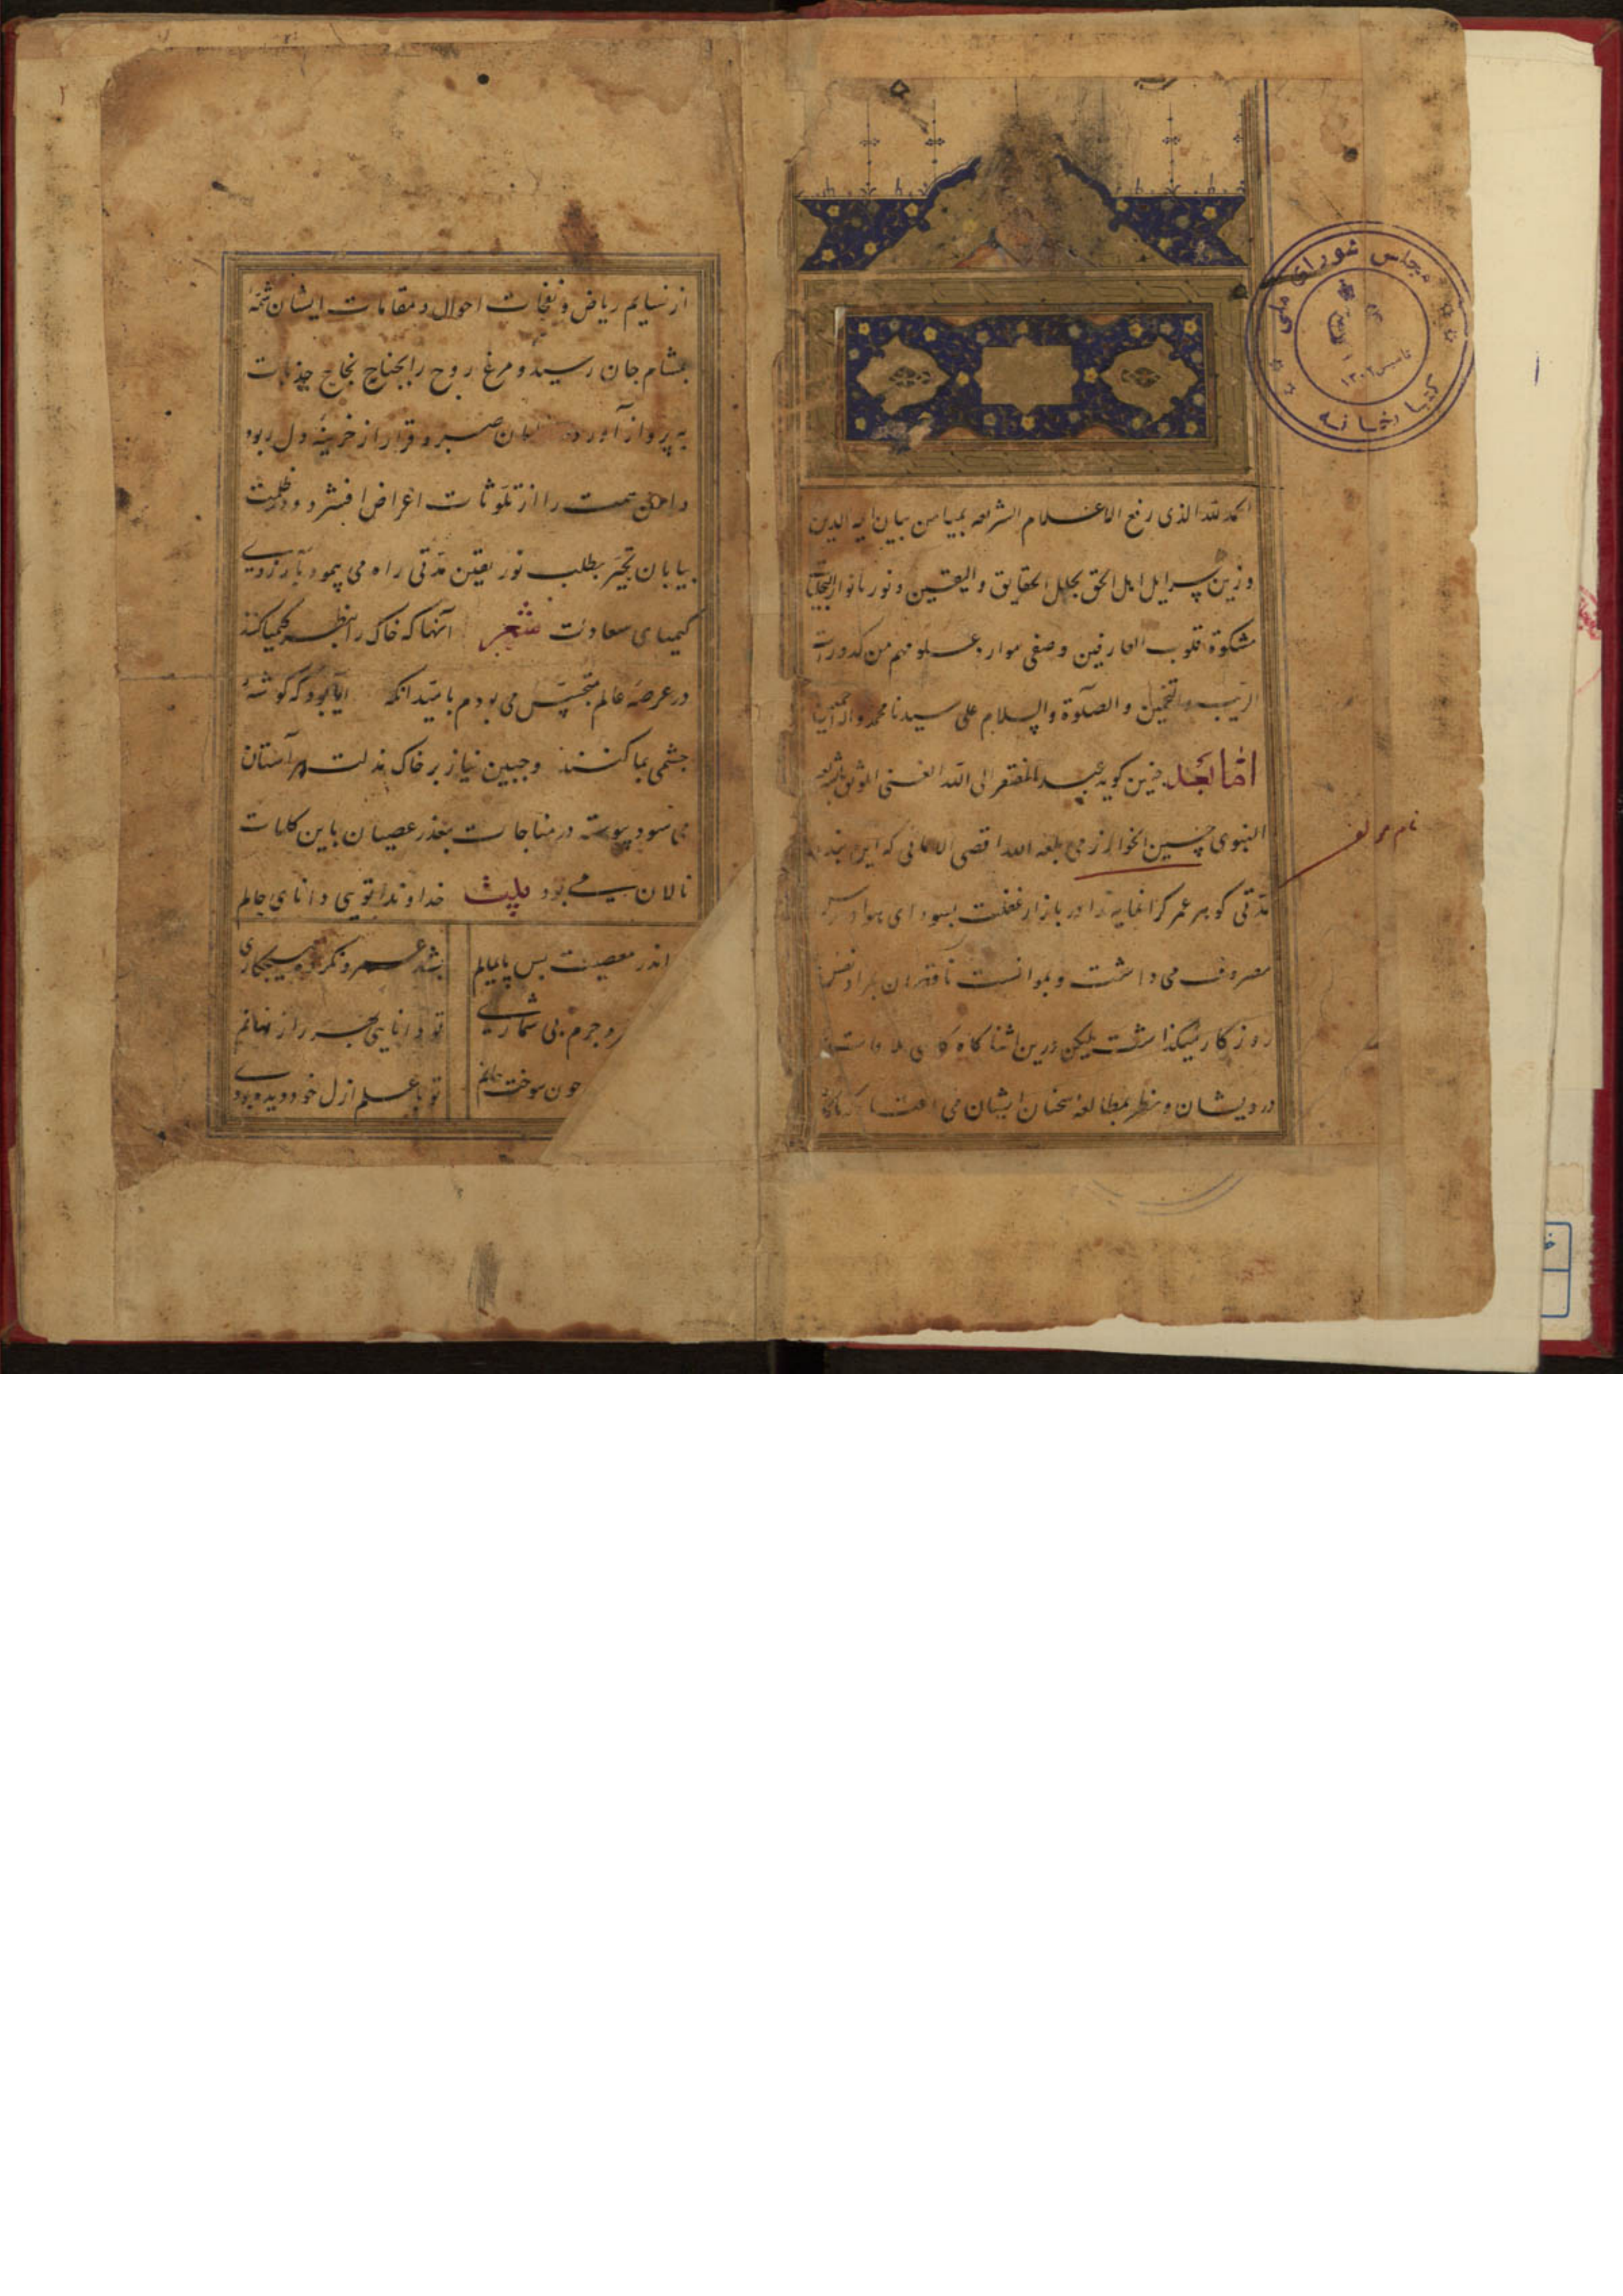 الحمد لله الذی رفع الاعلام الشریعه بمیامن بیان ایه الدین
وزین سرایر اهل الحق بحلل الحقایق والیقین ونور بانوار التجلیات
مشکوة قلوب العارفین وصفی موارد علومهم من کدورات
الریب والتخمین والصلوة والسلام علی سیدنا محمد واله اجمعین
اما بعد چنین کوید عبد المفتقر الی الله الغنی
النبوی حسین الخوارزمی بلغه الله اقصی الامانی که این بنده
مدتی کوهر عمر کرانمایه را در بازار غفلت بسودای هوا وهوس
مصروف می داشت و بموانست ناقصان بمراد نفس
روزکار میکذاشت لیکن درین اثنا کاه کاهی
درویشان ونظر بمطالعه سخنان ایشان می
نام مولف
مجلس شورای ملی
کتابخانه
تاسیس ۱۳۰۲
۱
۲
از نسایم ریاض و نفحات احوال و مقامات ایشان شمهٔ
بمشام جان رسید و مرغ روح را بجناح نجاح جذبات
به پرواز آورده صبر و قرار از خزینه دل ربود
دامن همت را از تلوثات اعراض افشرد و در ظلمت
بیابان تحیر بطلب نور یقین مدتی راه می پیمود بارزوی
کیمیای سعادت شعر آنها که خاک را بنظر کیمیا کنند
در عرصه عالم متجسس می بودم بامید انکه ایا بود که کوشهٔ
چشمی بما کنند وجبین نیاز بر خاک مذلت هر آستان
می سود پیوسته در مناجات بعذر عصیان باین کلمات
نالان می بود بیت خداوندا تویی دانای حالم
اندر معصیت بس پایمالم بشد عمر و نکردم هیچ کاری
و جرم بی شماری تو دانایی بهر راز نهانم
چون سوخت جانم تو با علم ازل خود دیده بودی